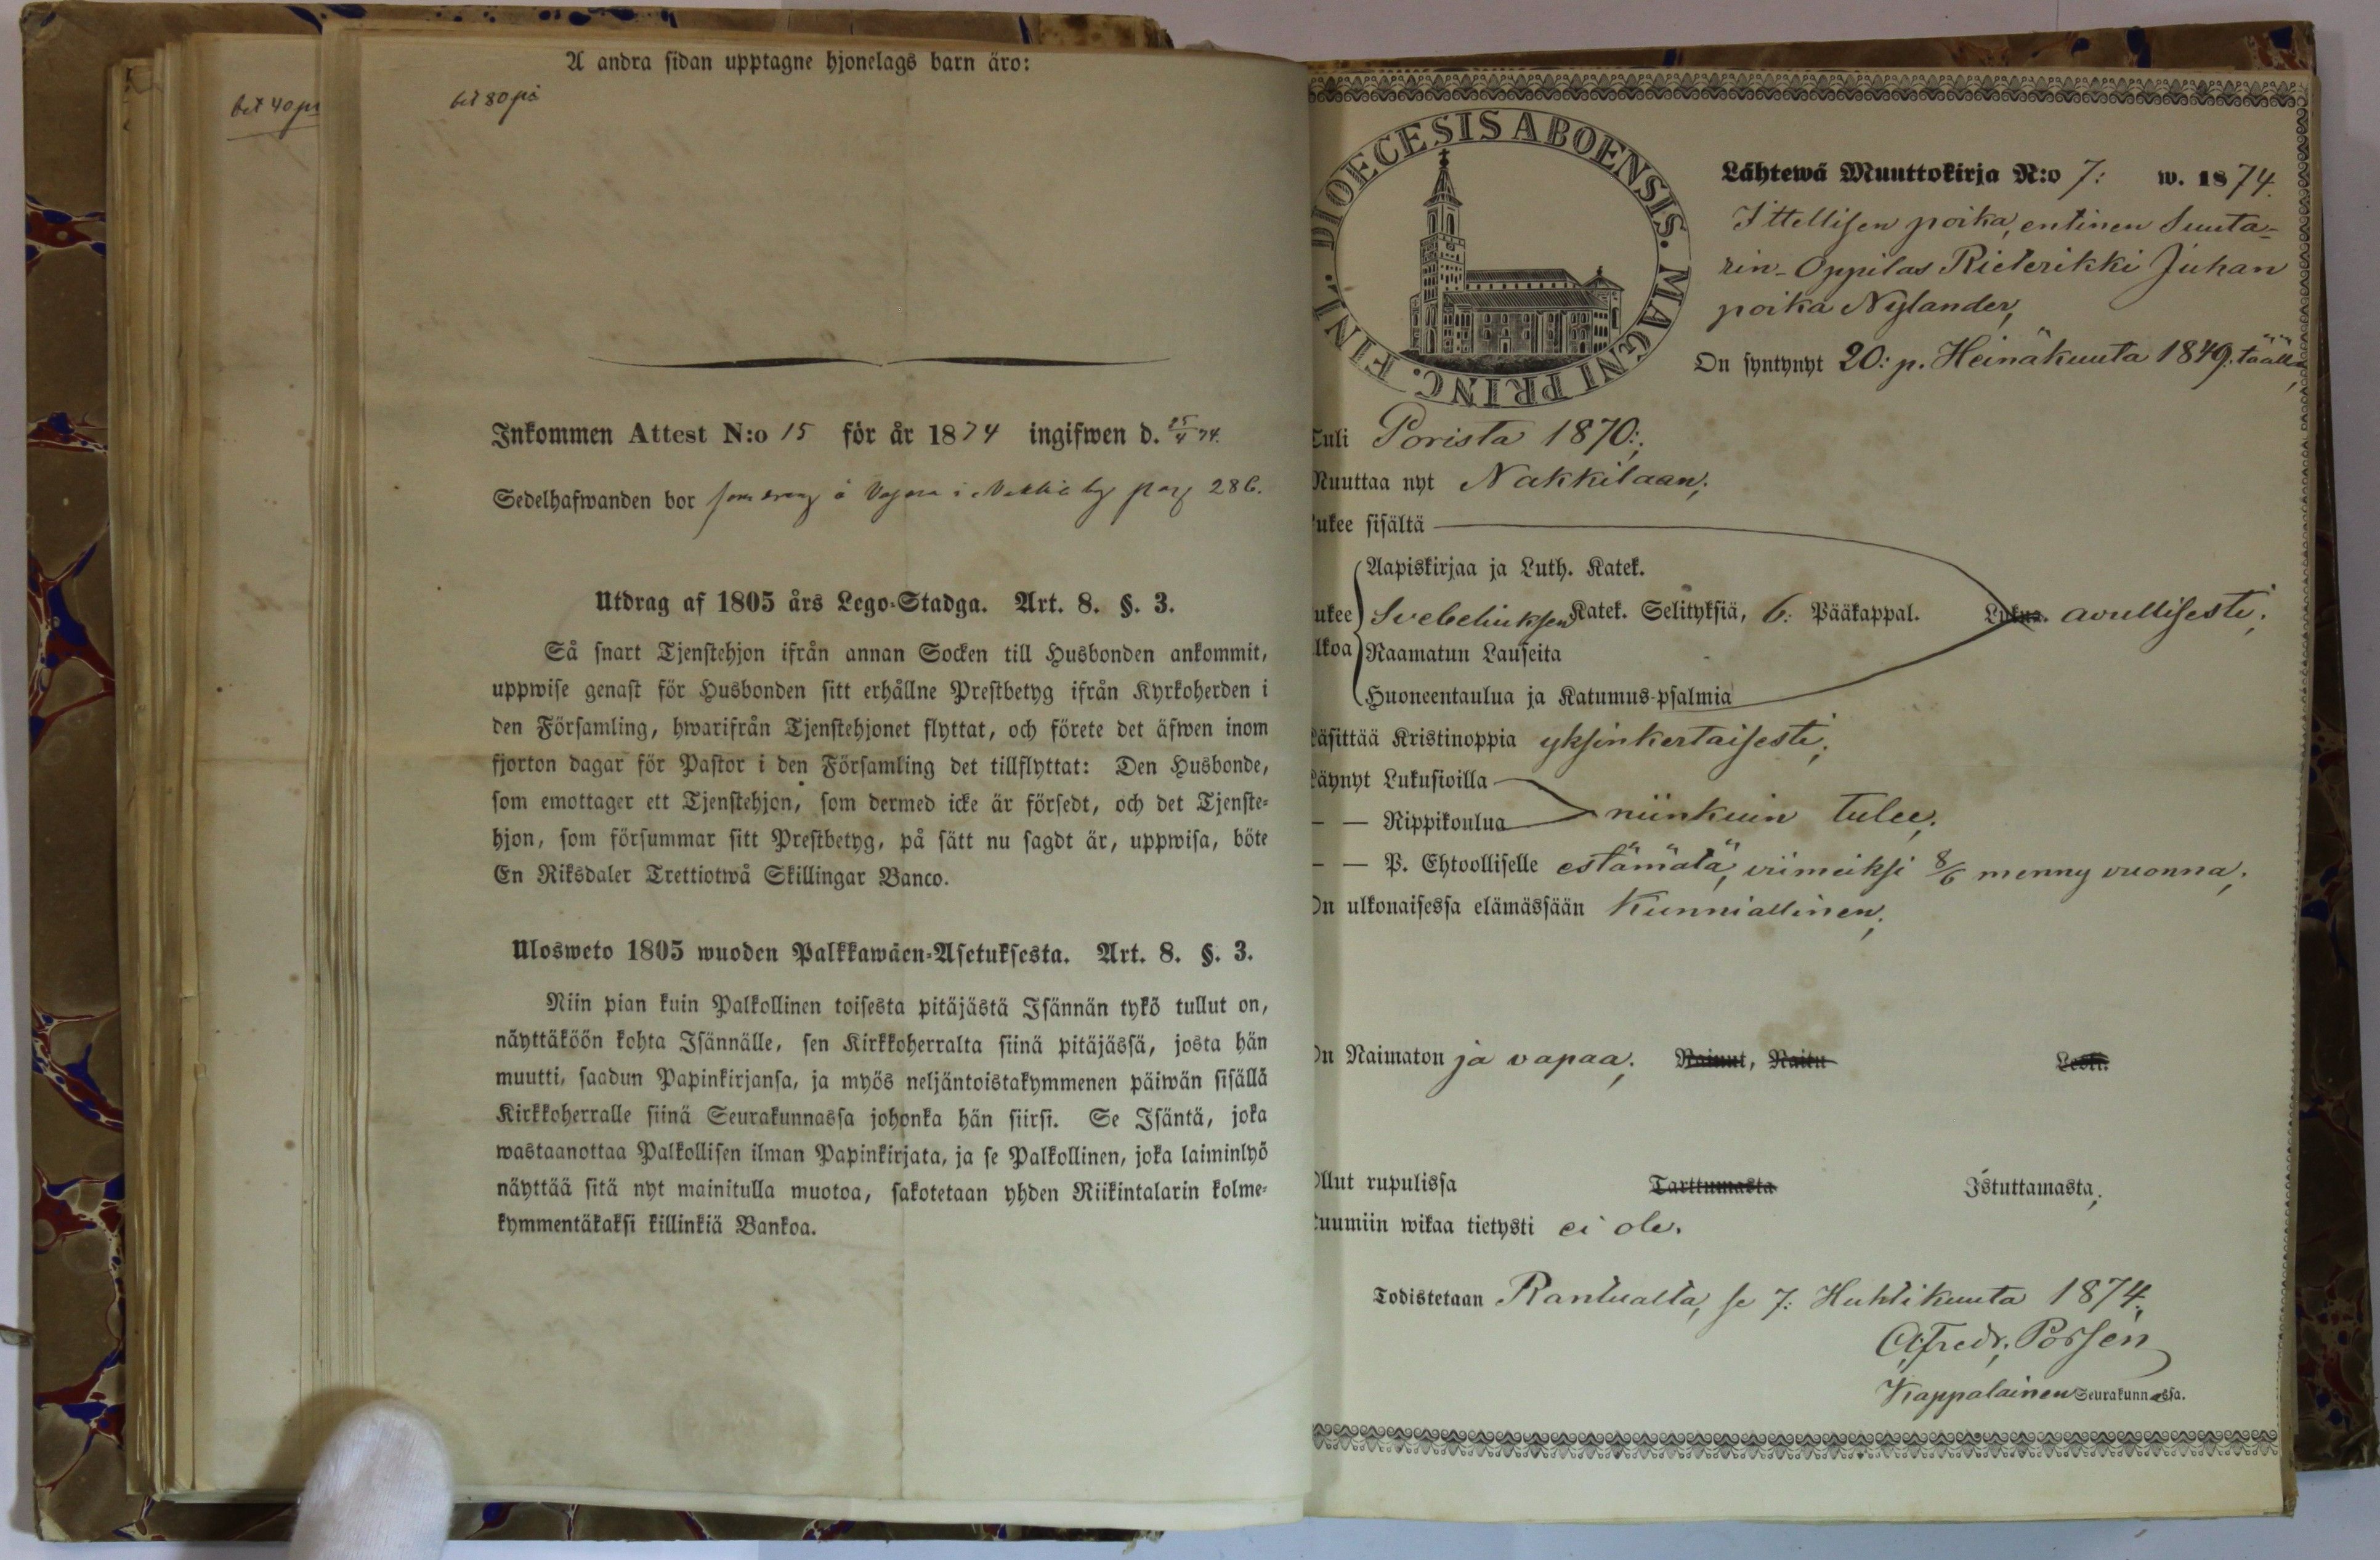 A andra sidan upptagne hjonelags barn äro:
bet 40 pi
bet 80 pi
Inkommen Attest N:o 15 för år 1874 ingifwen d. 25/4 74.
Sedelhafwanden bor som dräng å i by pag 286.
Utdrag af 1805 års Lego-Stadga. Art. 8. §. 3.
Så snart Tjenstehjon ifrån annan Socken till Husbonden ankommit,
uppwise genast för Husbonden sitt erhållne Prestbetyg ifrån Kyrkoherden i
den Församling, hwarifrån Tjenstehjonet flyttat, och förete det äfwen inom
fjorton dagar för Pastor i den Församling det tillflyttat: Den Husbonde,
som emottager ett Tjenstehjon, som dermed icke är försedt, och det Tjenste-
hjon, som försummar sitt Prestbetyg, på sätt nu sagdt är, uppwisa, böte
En Riksdaler Trettiotwå Skillingar Banco.
Ulosweto 1805 wuoden Palkkawäen-Asetuksesta. Art. 8. §. 3.
Niin pian kuin Palkollinen toisesta pitäjästä Isännän tykö tullut on,
näyttäköön kohta Isännälle, sen Kirkkoherralta siinä pitäjässä, josta hän
muutti, saadun Papinkirjansa, ja myös neljäntoistakymmenen päiwän sisällä
Kirkkoherralle siinä Seurakunnassa johonka hän siirsi. Se Isäntä, joka
wastaanottaa Palkollisen ilman Papinkirjata, ja se Palkollinen, joka laiminlyö
näyttää sitä nyt mainitulla muotoa, sakotetaan yhden Riikintalarin kolme-
kymmentäkaksi killinkiä Bankoa.
DIOECESIS ABOENSIS. MAGNI PRINC. FINL.
Lähtewä Muuttokirja N:o 7: w. 1874.
Ittellisen poika, entinen Suuta-
rin-Oppilas Rieterikki Juhan
poika Nylander,
On syntynyt 20: p. Heinäkuuta 1849: täällä,
Tuli Porista 1870:;
Muuttaa nyt Nakkilaan;
ukee sisältä
Aapiskirjaa ja Luth. Katek.
ukee Svebeliuksen Katek. Selityksiä, 6: Pääkappal. Lukua. avullisesti;
lkoa Raamatun Lauseita
Huoneentaulua ja Katumus-psalmia
äsittää Kristinoppia yksinkertaisesti;
äynyt Lukusioilla
— — Rippikoulua niinkuin tulee;
— — P. Ehtoolliselle estämätä, viimeiksi 8/6 menny vuonna;
On ulkonaisessa elämässään Kunniallinen;
On Naimaton ja vapaa; Nainut, Naitu Leski.
Ollut rupulissa Tarttumasta Istuttamasta;
uumiin wikaa tietysti ei ole.
Todistetaan Rantualta, se 7: Huhtikuuta 1874.,
A. Fredr. Porsén
Kappalainen Seurakunnassa.